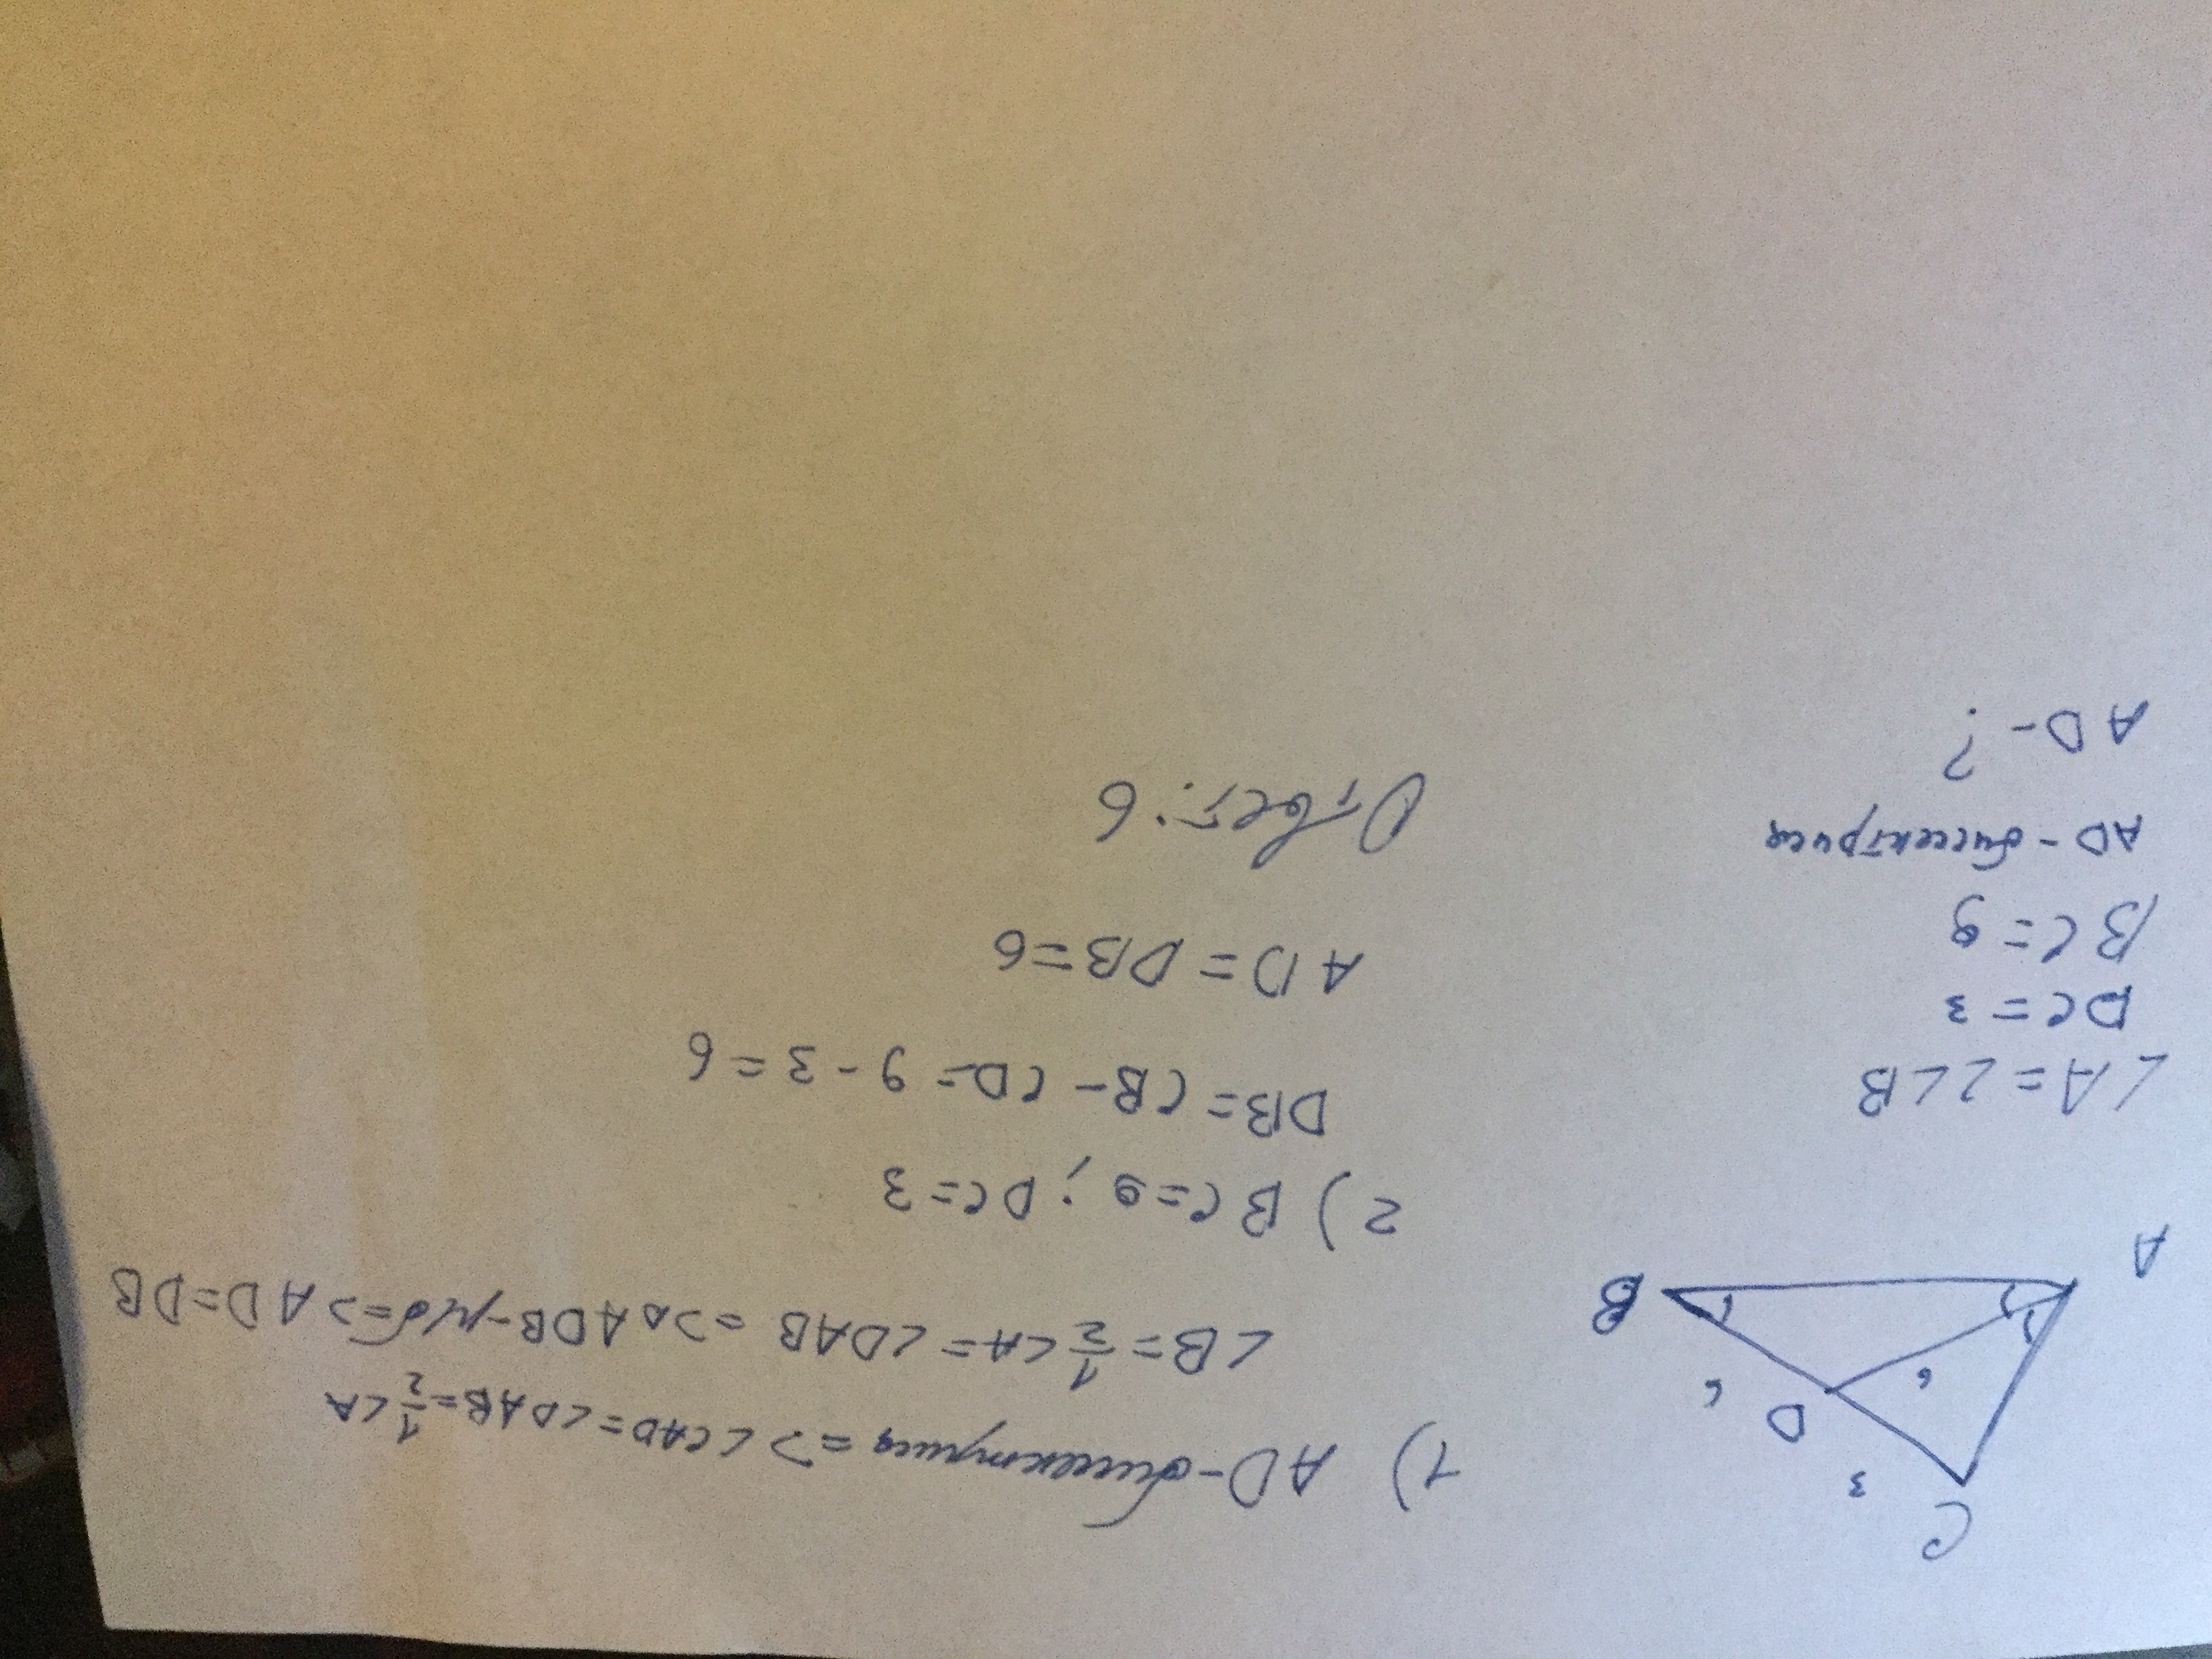 C
3
D
6
6
A
B
∠A = 2∠B
DC = 3
BC = 9
AD - биссектриса
AD - ?
1) AD - биссектриса => ∠CAD = ∠DAB = 1/2 ∠A
∠B = 1/2 ∠A = ∠DAB => △ADB - р/б => AD = DB
2) BC = 9 ; DC = 3
DB = CB - CD = 9 - 3 = 6
AD = DB = 6
Ответ: 6